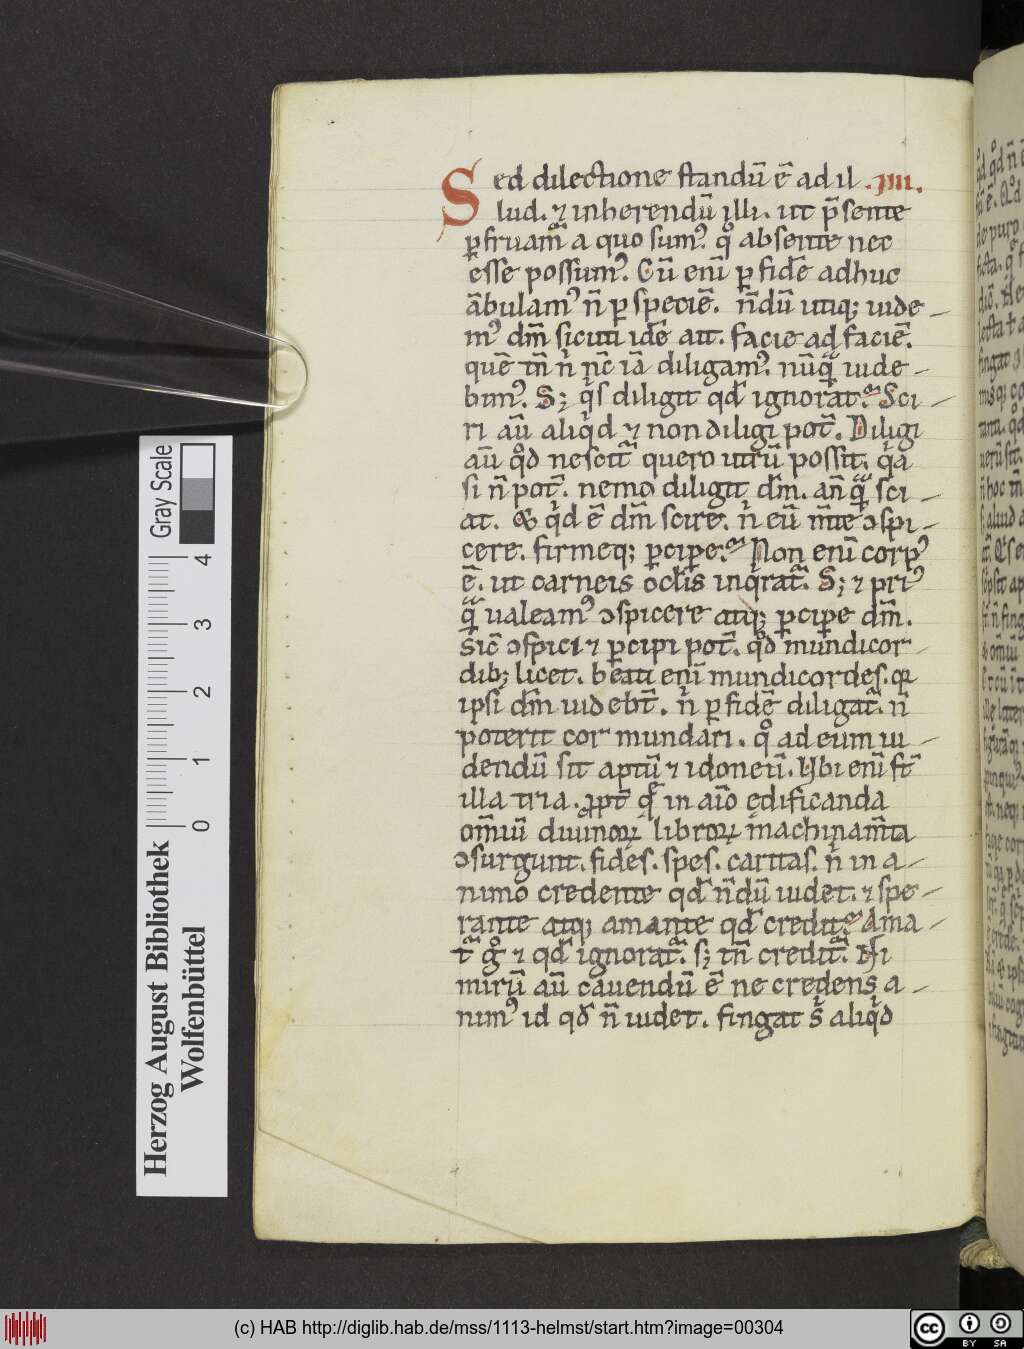 Sed dilectione standū ē ad il .IIII.
lud. ⁊ inherendū illi. ut p̄sente
ꝑfruam̄ a quo sumꝰ. qͦ absente nec
esse possumꝰ. Cū enī ꝑ fidē adhuc
ābulamꝰ n̄ ꝑ speciē. n̄dū utiqꝫ uide-
mꝰ dm̄ sicuti idē ait. facie ad faciē.
quē tn̄ ni n̄c iā diligamꝰ. nūqͣ uide-
bimꝰ. Sꝫ qͥs diligit qd̄ ignorat. Sci-
ri aū aliqͥd ⁊ non diligi pot̄. Diligi
aū qͦd nescit᷑ quero utrū possit. qͥa
si n̄ pot̄. nemo diligit dm̄. an̄ qͣ sci-
at. Et qͥd ē dm̄ scire. nͥ eū m̄te ↄspi-
cere. firmeqꝫ ꝑcipe. Non enī corpꝰ
ē. ut carneis oclis inqͥrat᷑. Sꝫ ⁊ priꝰ
qͣ ualeamꝰ ↄspicere atqꝫ ꝑcipe dm̄.
sic̄ ↄspici ⁊ ꝑcipi pot̄. qͦd mundicor-
dibꝫ licet. beati enī mundicordes. qꝛ
ipsi dm̄ uidebt̄. nͥ ꝑ fidē diligat᷑. n̄
poterit cor mundari. qͦ ad eum ui-
dendū sit aptū ⁊ idoneū. Ubi enī st̄
illa tria. ꝓpt̄ qͤ in aīo edificanda
om̄iū diuinoꝝ libroꝝ machinam̄ta
ↄsurgunt. fides. spes. caritas. nͥ in a-
nimo credente qd̄ n̄dū uidet. ⁊ spe-
rante atqꝫ amante qd̄ credit. Ama-
t᷑ gͦ ⁊ qd̄ ignorat᷑. sꝫ tn̄ credit᷑. Ni
mirū aū cauendū ē ne credens a-
nimꝰ id qd̄ n̄ uidet. fingat s̄ aliqͥd
Gray Scale
4
3
2
1
0
Herzog August Bibliothek
Wolfenbüttel
(c) HAB http://diglib.hab.de/mss/1113-helmst/start.htm?image=00304
cc
BY SA